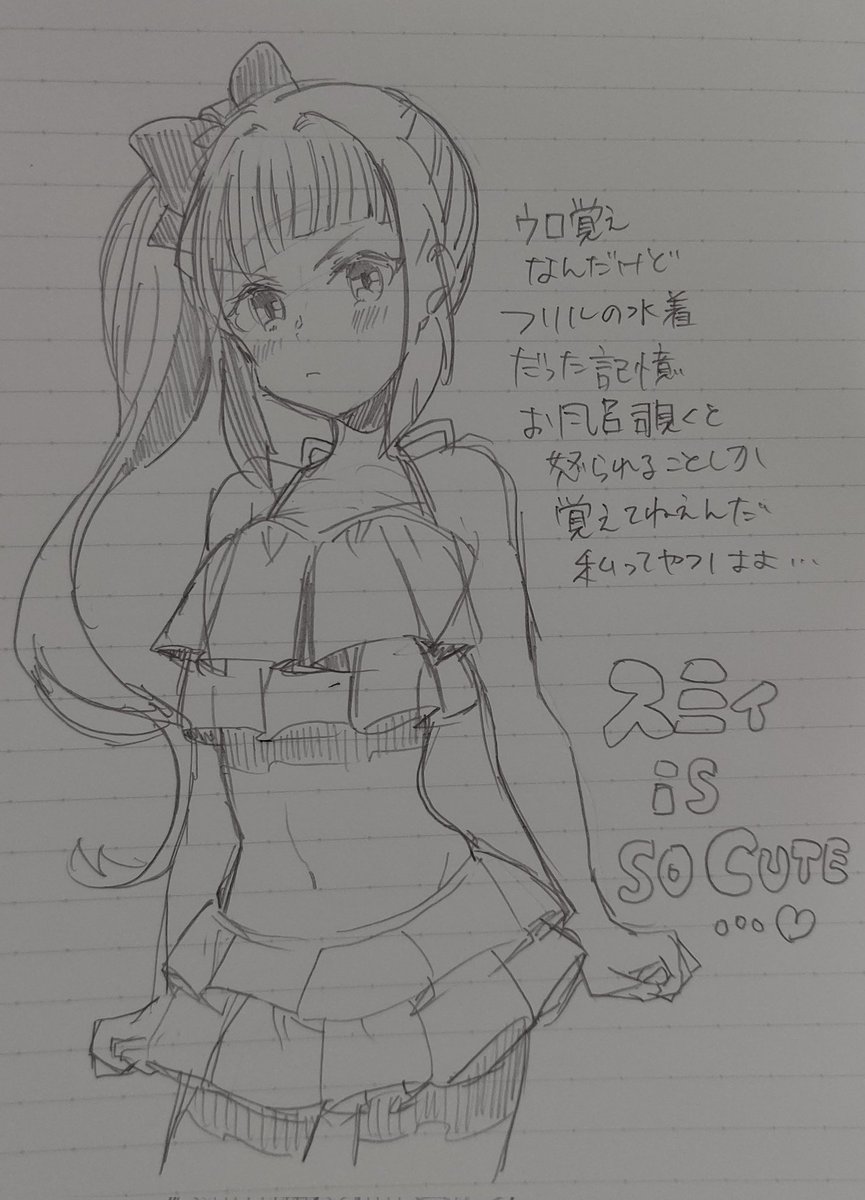 ウロ覚え
なんだけど
フリルの水着
だった記憶
お風呂覗くと
怒られることしか
覚えてねえんだ
私ってやつはよ…
スミィ
is
SO CUTE
...♡